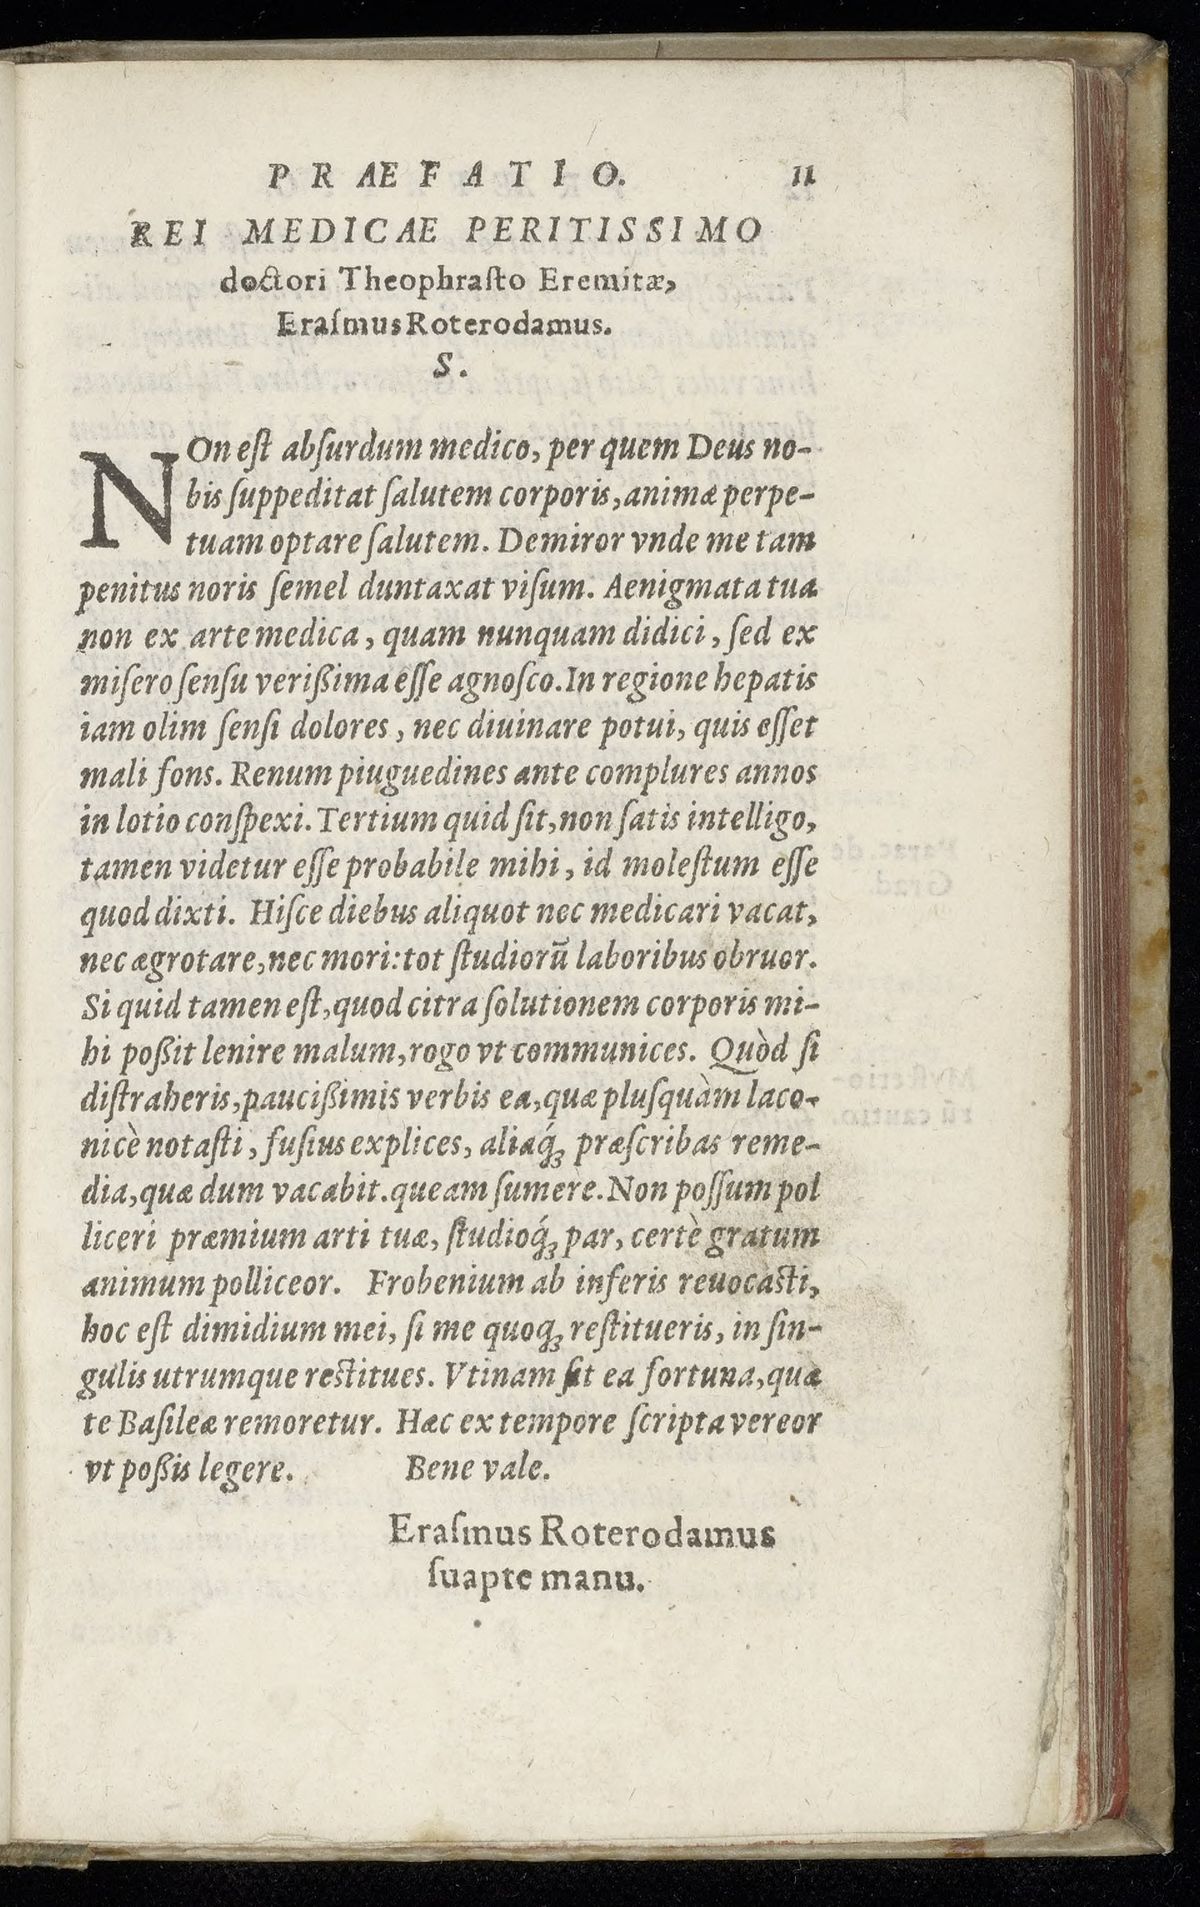 PRÆFATIO. 11
REI MEDICÆ PERITISSIMO
doctori Theophraſto Eremitæ,
Eraſmus Roterodamus.
S.
NOn eſt abſurdum medico, per quem Deus no-
bis ſuppeditat ſalutem corporis, animæ perpe-
tuam optare ſalutem. Demiror vnde me tam
penitus noris ſemel duntaxat viſum. Aenigmata tua
non ex arte medica, quam nunquam didici, ſed ex
miſero ſenſu verißima eſſe agnoſco. In regione hepatis
iam olim ſenſi dolores, nec diuinare potui, quis eſſet
mali fons. Renum piuguedines ante complures annos
in lotio conſpexi. Tertium quid ſit, non ſatis intelligo,
tamen videtur eſſe probabile mihi, id moleſtum eſſe
quod dixti. Hiſce diebus aliquot nec medicari vacat,
nec ægrotare, nec mori: tot ſtudiorū laboribus obruor.
Si quid tamen eſt, quod citra ſolutionem corporis mi-
hi poßit lenire malum, rogo vt communices. Quòd ſi
diſtraheris, paucißimis verbis ea, quæ pluſquàm laco-
nicè notaſti, fuſius explices, aliaq́ꝫ præſcribas reme-
dia, quæ dum vacabit. queam ſumere. Non poſſum pol
liceri præmium arti tuæ, ſtudioq́ꝫ par, certè gratum
animum polliceor. Frobenium ab inferis reuocàſti,
hoc eſt dimidium mei, ſi me quoqꝫ reſtitueris, in ſin-
gulis utrumque reſtitues. Vtinam ſit ea fortuna, quæ
te Baſileæ remoretur. Hæc ex tempore ſcripta vereor
vt poßis legere. Bene vale.
Eraſmus Roterodamus
ſuapte manu.